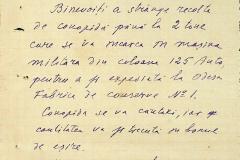 Binevoiți a strânge recolta
de conopidă până la 2 tone
care se va încărca în mașina
militară din coloana 125 Auto,
pentru a fi expediată la Odesa
Fabrica de conserve No 1.
Conopida se va cântări, iar
cantitatea va fi trecută în bonul
de eșire.